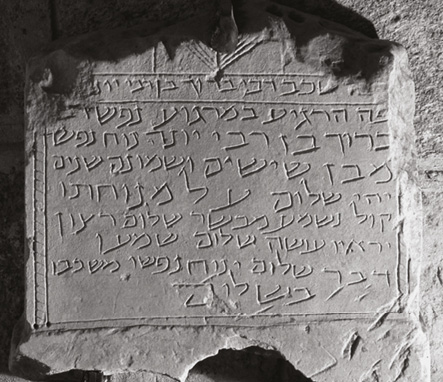 משכב רבי ברוך בן רבי יונה
פה הרגיע במרגוע נפש רבי
ברוך בן רבי יונה נוח נפש
מבן שישים ושמונה שנים
יהי שלום על מנוחתו
קול נשמע מבשר שלום רצון
יראיו עושה שלום
דבר שלום ינוח נפשו משכבו
בשלום